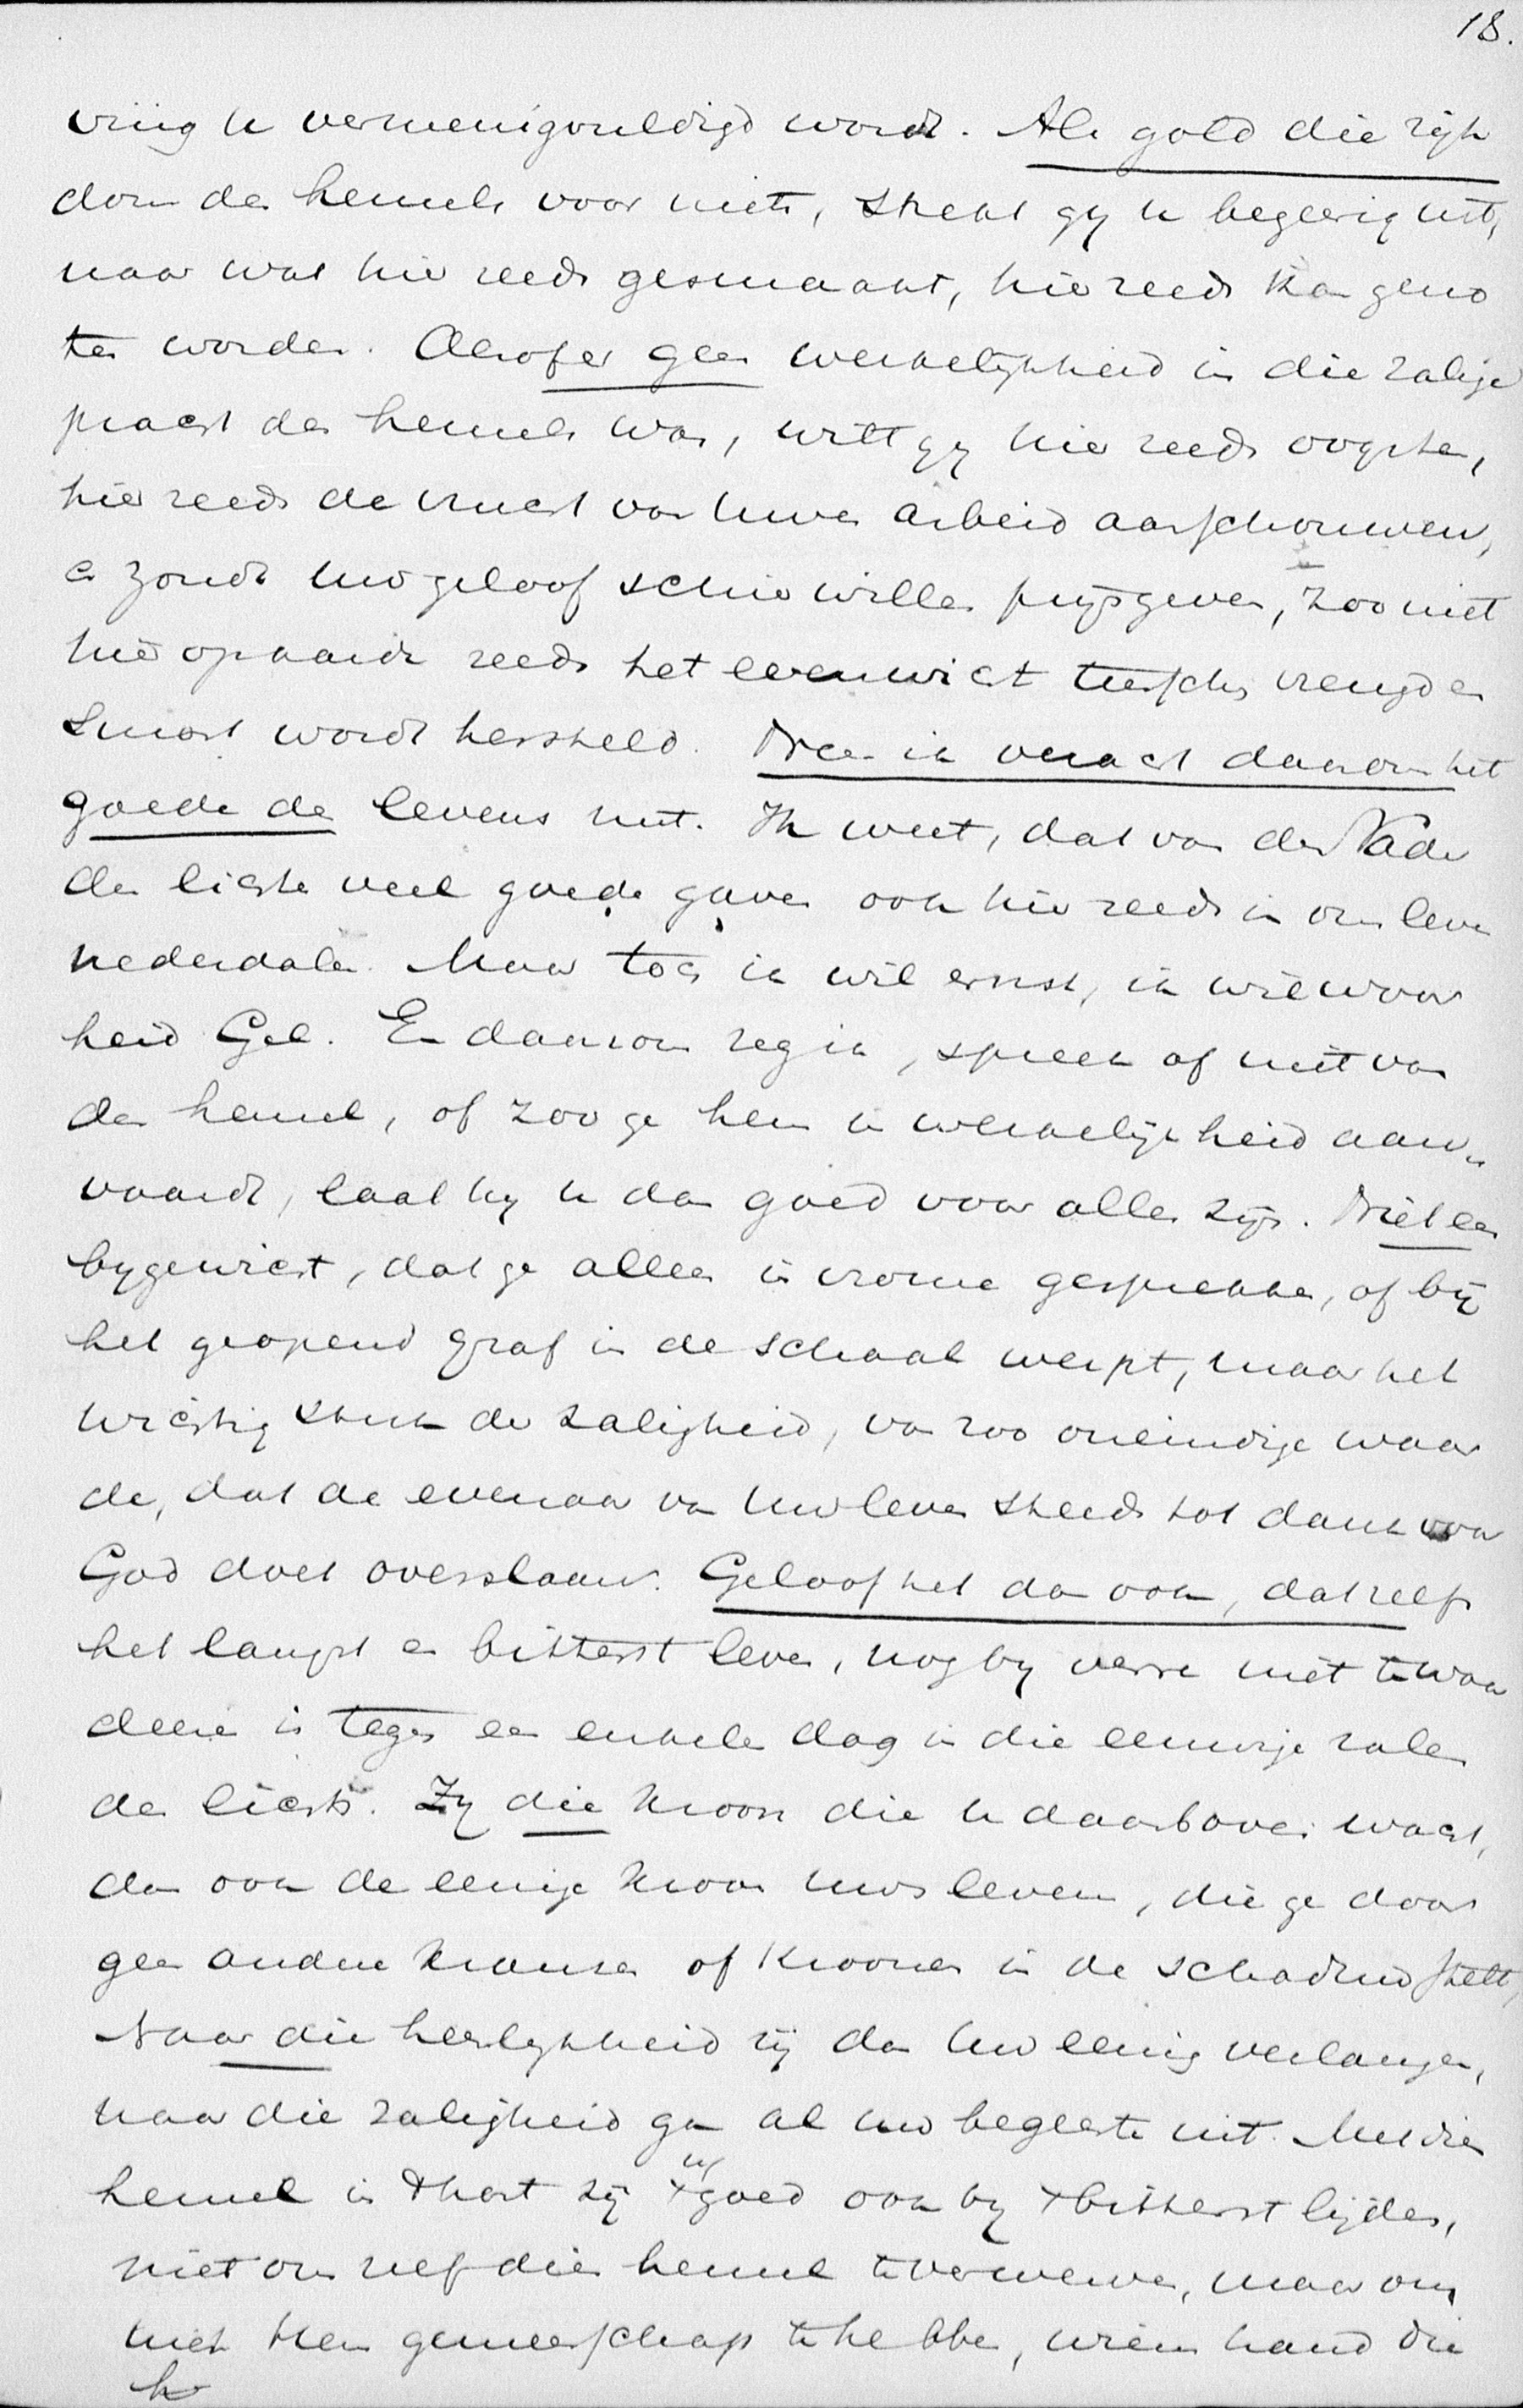 18.
ving u vermenigvuldigd wordt. Als gold die rijk
dom des hemels voor niets, strekt gy u begeerig uit,
naar wat hier reeds gesmaakt, hier reeds kan geno
ten worden. Alsof er geen werkelijkheid in die zalige
pracht des hemels was, wilt gy hier reeds oogsten,
hier reeds de vrucht van uwen arbeid aanschouwen,
en zoudt uw geloof schier willen prijsgeven, zoo niet
hier op aarde reeds het evenwicht tusschen vreugd en
smart wordt hersteld. Neen ik veracht daarom het
goede des levens niet. Ik weet, dat van den Vader
der lichten veel goede gaven ook hier reeds in ons leven
nederdalen. Maar toch ik wil ernst, ik wil waar
heid Gel. En daarom zeg ik, spreek of niet van
den hemel, of zoo ge hem in werkelijkheid aan„
vaardt, laat hy u dan goed voor alles zijn. Niet een
bygewicht, dat ge alleen in vrome gesprekken, of bij
het geopend graf in de schaal werpt, maar het
wichtig stuk der zaligheid, van zoo oneindige waar
de, dat de evenaar van uw leven steeds tot dank voor
God doet overslaan. Geloof het dan ook, dat zelfs
het langst en bitterst leven, nog by verre niet te waar
deeren is tegen een enkelen dag in die eeuwige zalen
des lichts. Zy die kroon die u daarboven wacht,
dan ook de eenige kroon uws levens, die ge door
geen andere kransen of kroonen in de schaduw stelt,
Naar die heerlykheid zij dan uw eenig verlangen,
naar die zaligheid ga al uw begeerte uit. Met dien
hemel in 't hart zij 't u goed ook by 't bitterst lijden,
niet om zelf dien hemel te verwerven, maar om
met Hem gemeenschap te hebben, wiens hand die